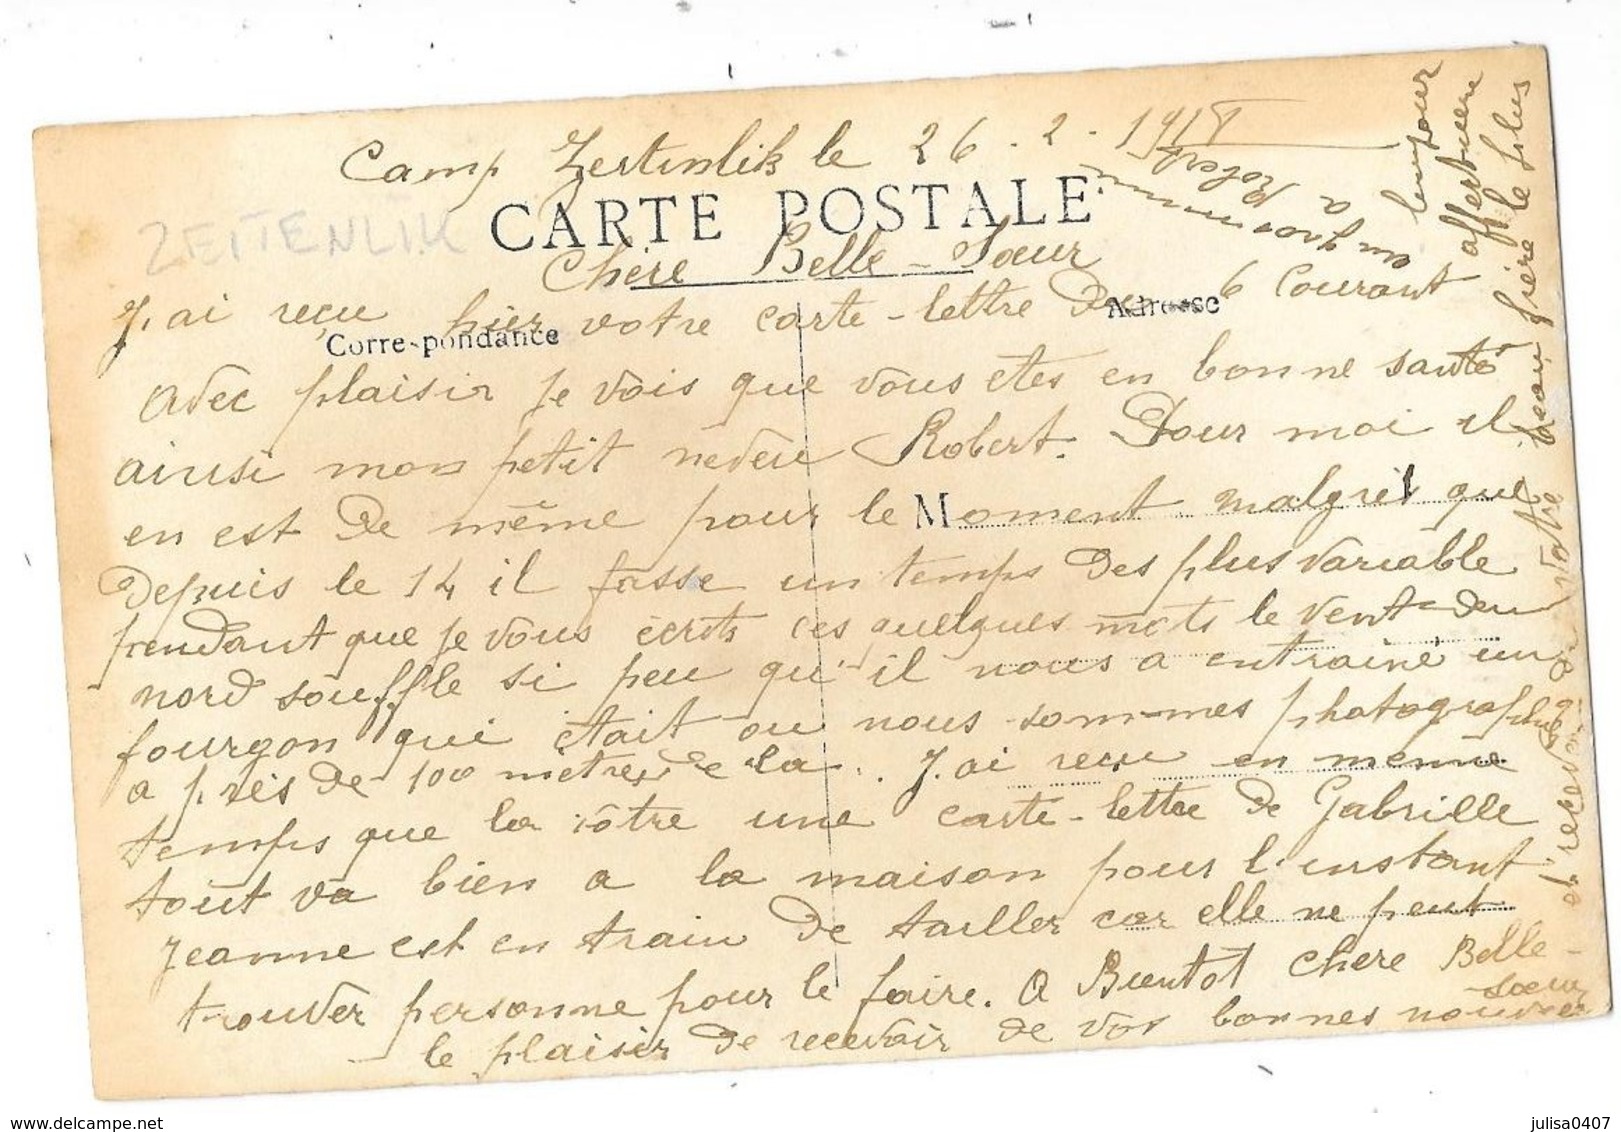 Camp Zeitenlik le 26 . 2 - 1918
ZEITENLIK
CARTE POSTALE
Chère Belle-Sœur
Correspondance
Adresse
J'ai reçu hier votre carte-lettre du 6 Courant
Avec plaisir je vois que vous êtes en bonne santé
ainsi mon petit neveu Robert. Pour moi il
en est de même pour le Moment malgrés que
depuis le 14 il fasse un temps des plus variable
pendant que je vous écrits ces quelques mots le vent du
nord souffle si peu qu'il nous a entrainé un
fourgon qui était ou nous sommes photographié
a près de 100 mètres de la . J'ai reçu en même
temps que la vôtre une carte-lettre de Gabrille
tout va bien a la maison pour l'instant
Jeanne est en train de tailler car elle ne peut
trouver personne pour le faire. A Bientot chère Belle-
sœur
le plaisir de recevoir de vos bonnes nouvelles
et recevez de votre beau frère le plus
affectueux
bonjour
un gros mimi
a Robert
julisa0407